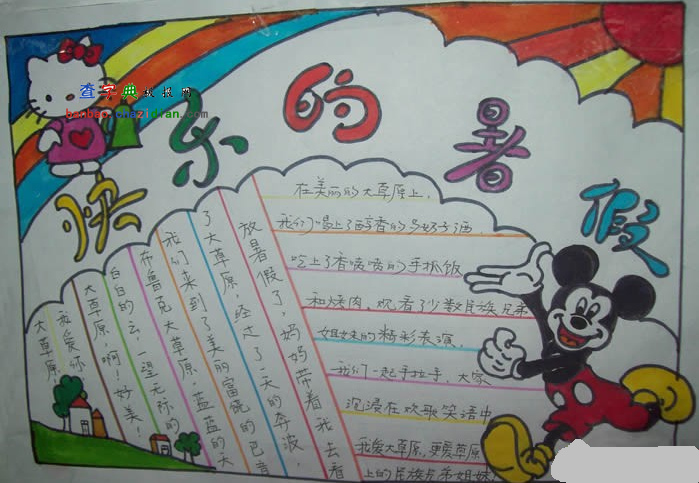 查字典板报网
banbao.chazidian.com
快乐的暑假
放暑假了，妈妈带着我去看
了大草原，经过了一天的奔波，
我们来到了美丽富饶的巴音
布鲁克大草原，蓝蓝的天
白白的云，一望无际的
大草原，啊！好美！
我爱你
大草原
在美丽的大草原上，
我们喝上了醇香的马奶子酒
吃上了香喷喷的手抓饭
和烤肉，观看了少数民族兄弟
姐妹的精彩表演，
我们一起手拉手，大家
沉浸在欢歌笑语中
我爱大草原，更爱草原
上的民族兄弟姐妹